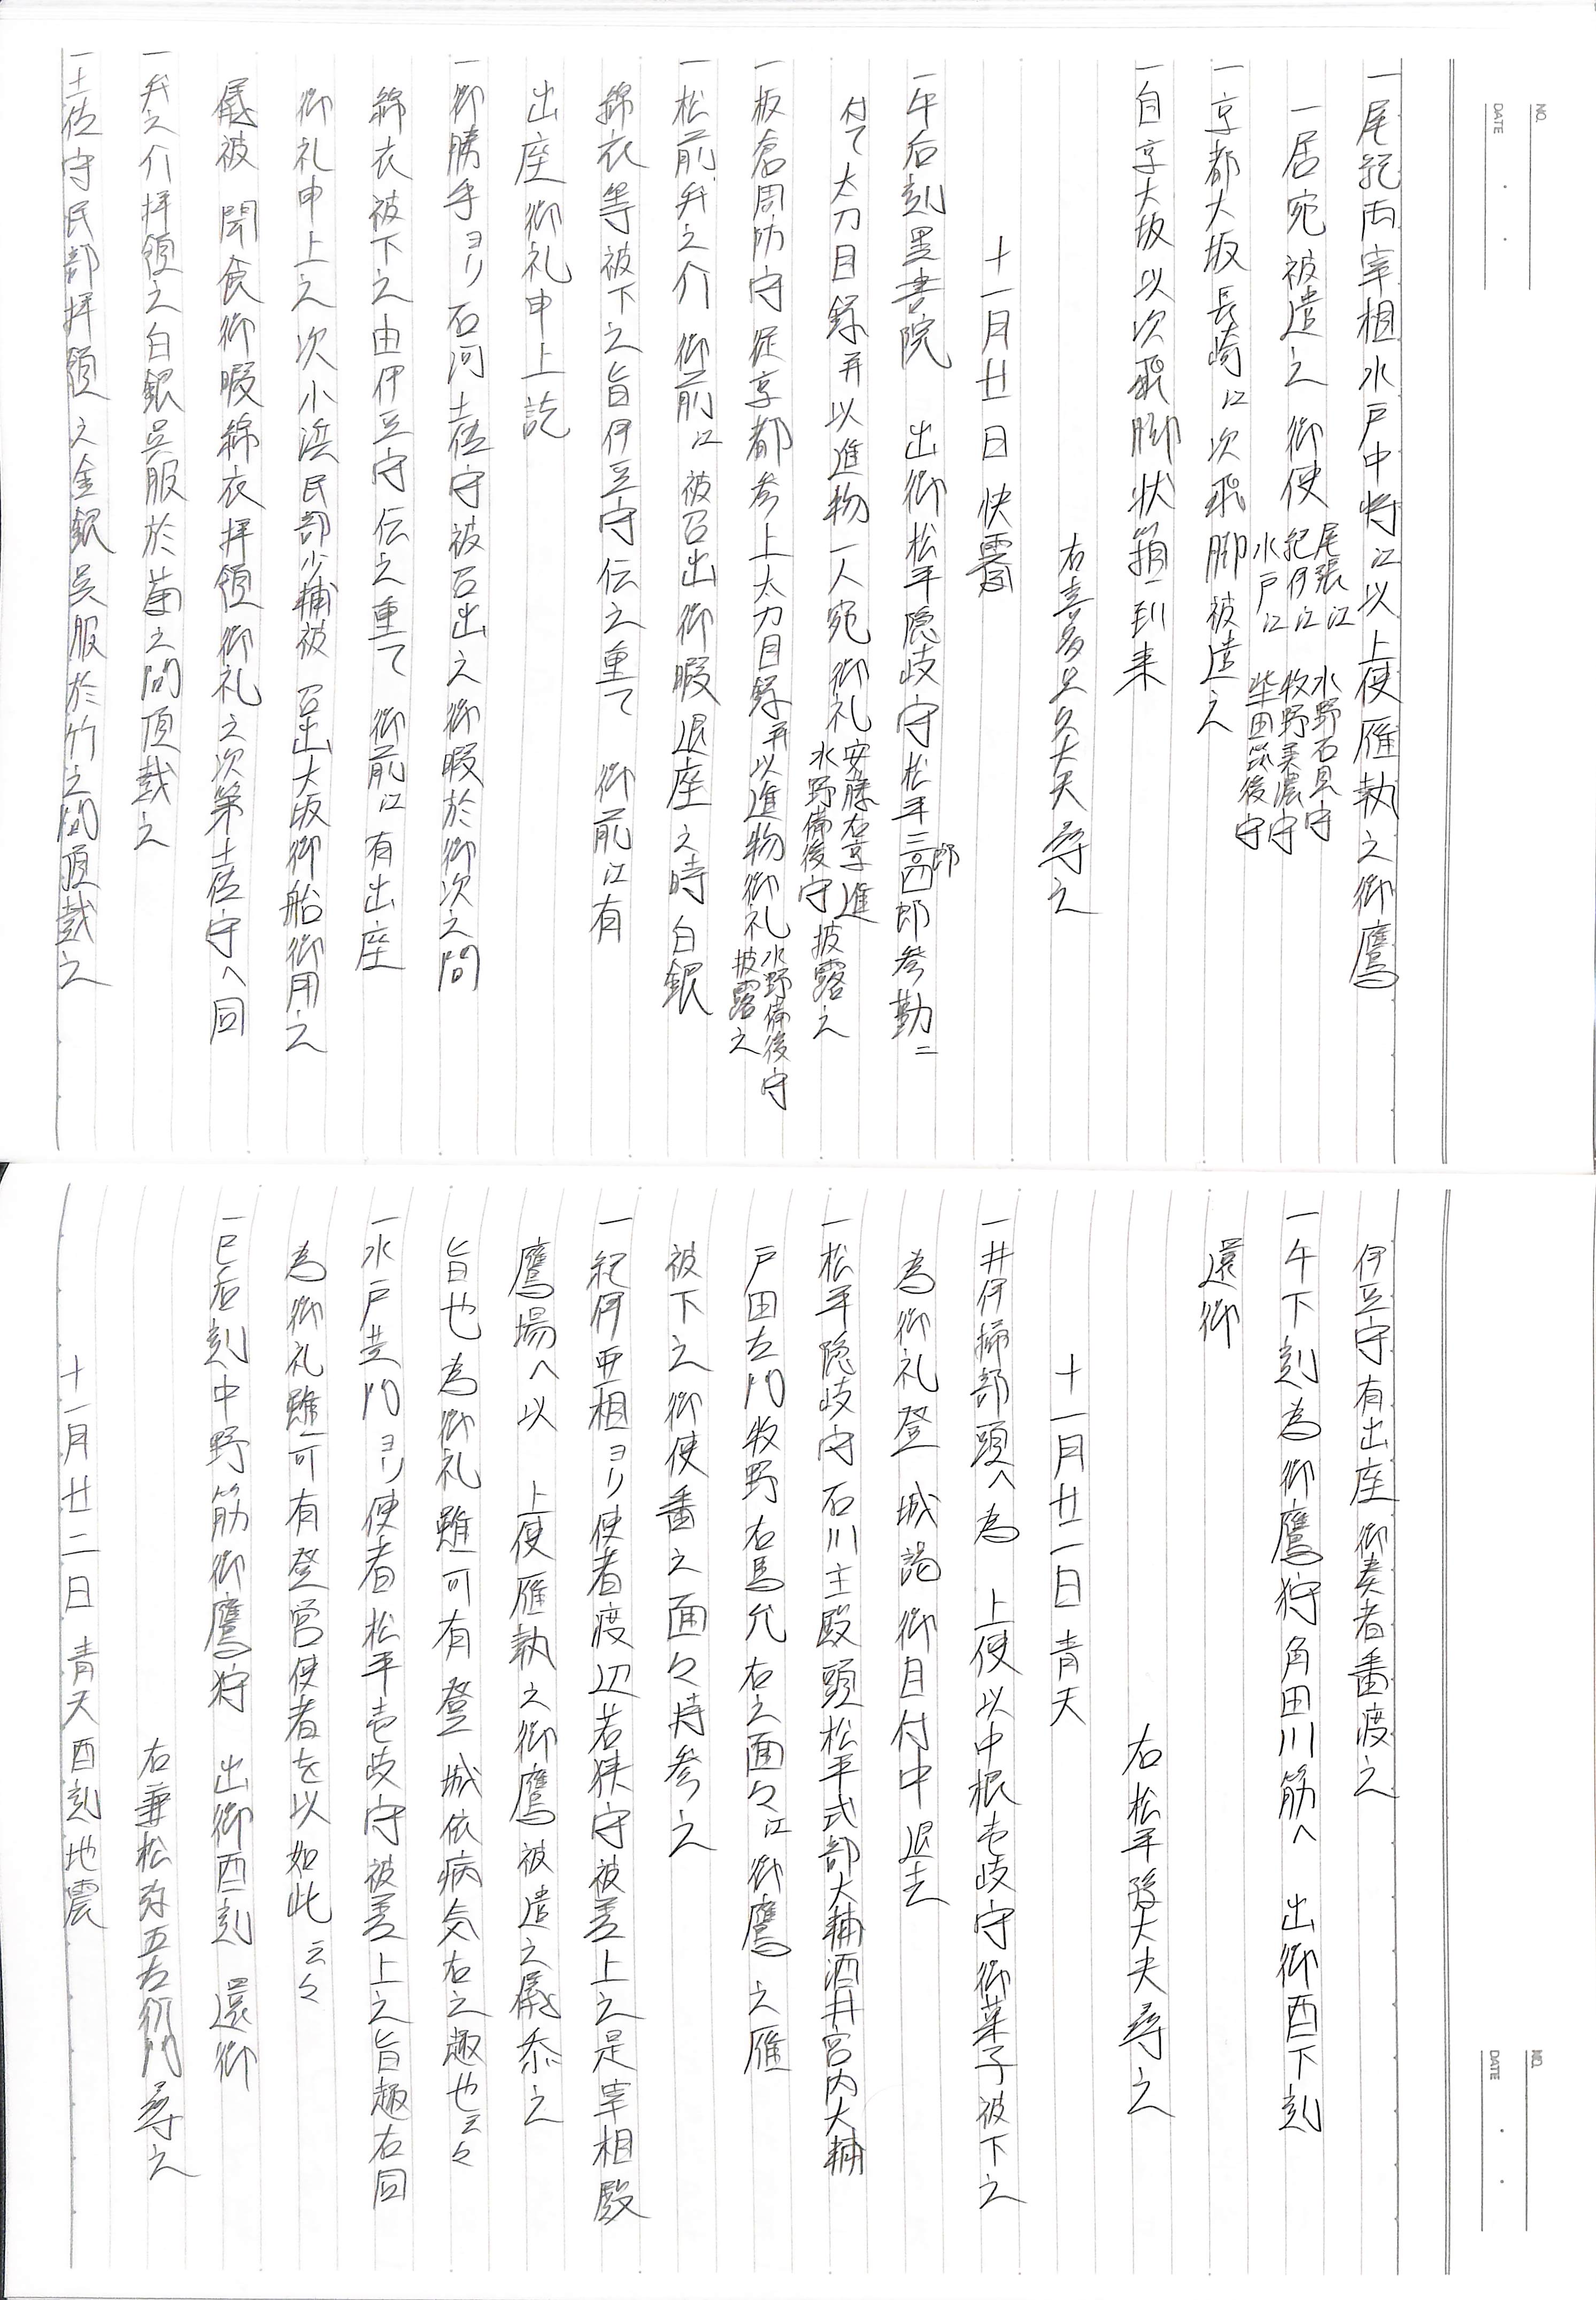 NO.
DATE
一尾紀両宰相水戸中将江以上使雁執之御鷹
一居宛被遣之 御使 尾張江 水野石見守
紀伊江 牧野美濃守
水戸江 柴田筑後守
一京都大坂長崎江次飛脚被遣之
一自京大坂以次飛脚状箱到来
右喜多見久大夫尋之
十一月廿日 快霽
一午后刻黒書院 出御松平隠岐守松平三郎四郎参勤ニ
付て太刀目録并以進物一人宛御礼 安藤右京進
水野備後守 披露之
一板倉周防守従京都参上太刀目録并以進物御礼 水野備後守
披露之
一松前弁之介 御前江被召出御暇退座之時白銀
綿衣等被下之旨伊豆守伝之重て 御前江有
出座御礼申上訖
一御勝手ヨリ石河土佐守被召出之御暇於御次之間
綿衣被下之由伊豆守伝之重て 御前江有出座
御礼申上之次小浜民部少輔被 召出大坂御船御用之
儀被 聞食御暇綿衣拝領御礼之次第土佐守へ同
一弁之介拝領之白銀呉服於菊之間頂戴之
一土佐守民部拝領之金銀呉服於竹之間頂戴之
NO.
DATE
伊豆守有出座 御奏者番渡之
一午下刻為御鷹狩角田川筋へ 出御酉下刻
還御
右松平隼大夫尋之
十一月廿一日 青天
一井伊掃部頭へ為 上使以中根壱岐守御菓子被下之
為御礼登 城謁御目付中退去
一松平隠岐守石川主殿頭松平式部大輔酒井宮内大輔
戸田左門牧野右馬允右之面々江御鷹之雁
被下之御使番之面々持参之
一紀伊亜相ヨリ使者渡辺若狭守被差上之是宰相殿
鷹場へ以 上使雁執之御鷹被遣之儀忝之
旨也為御礼雖可有登 城依病気右之趣也云々
一水戸黄門ヨリ使者松平壱岐守被差上之旨趣右同
為御礼雖可有登営使者を以如此云々
一巳后刻中野筋御鷹狩 出御酉刻 還御
右兼松弥五左衛門尋之
十一月廿二日 青天酉刻地震